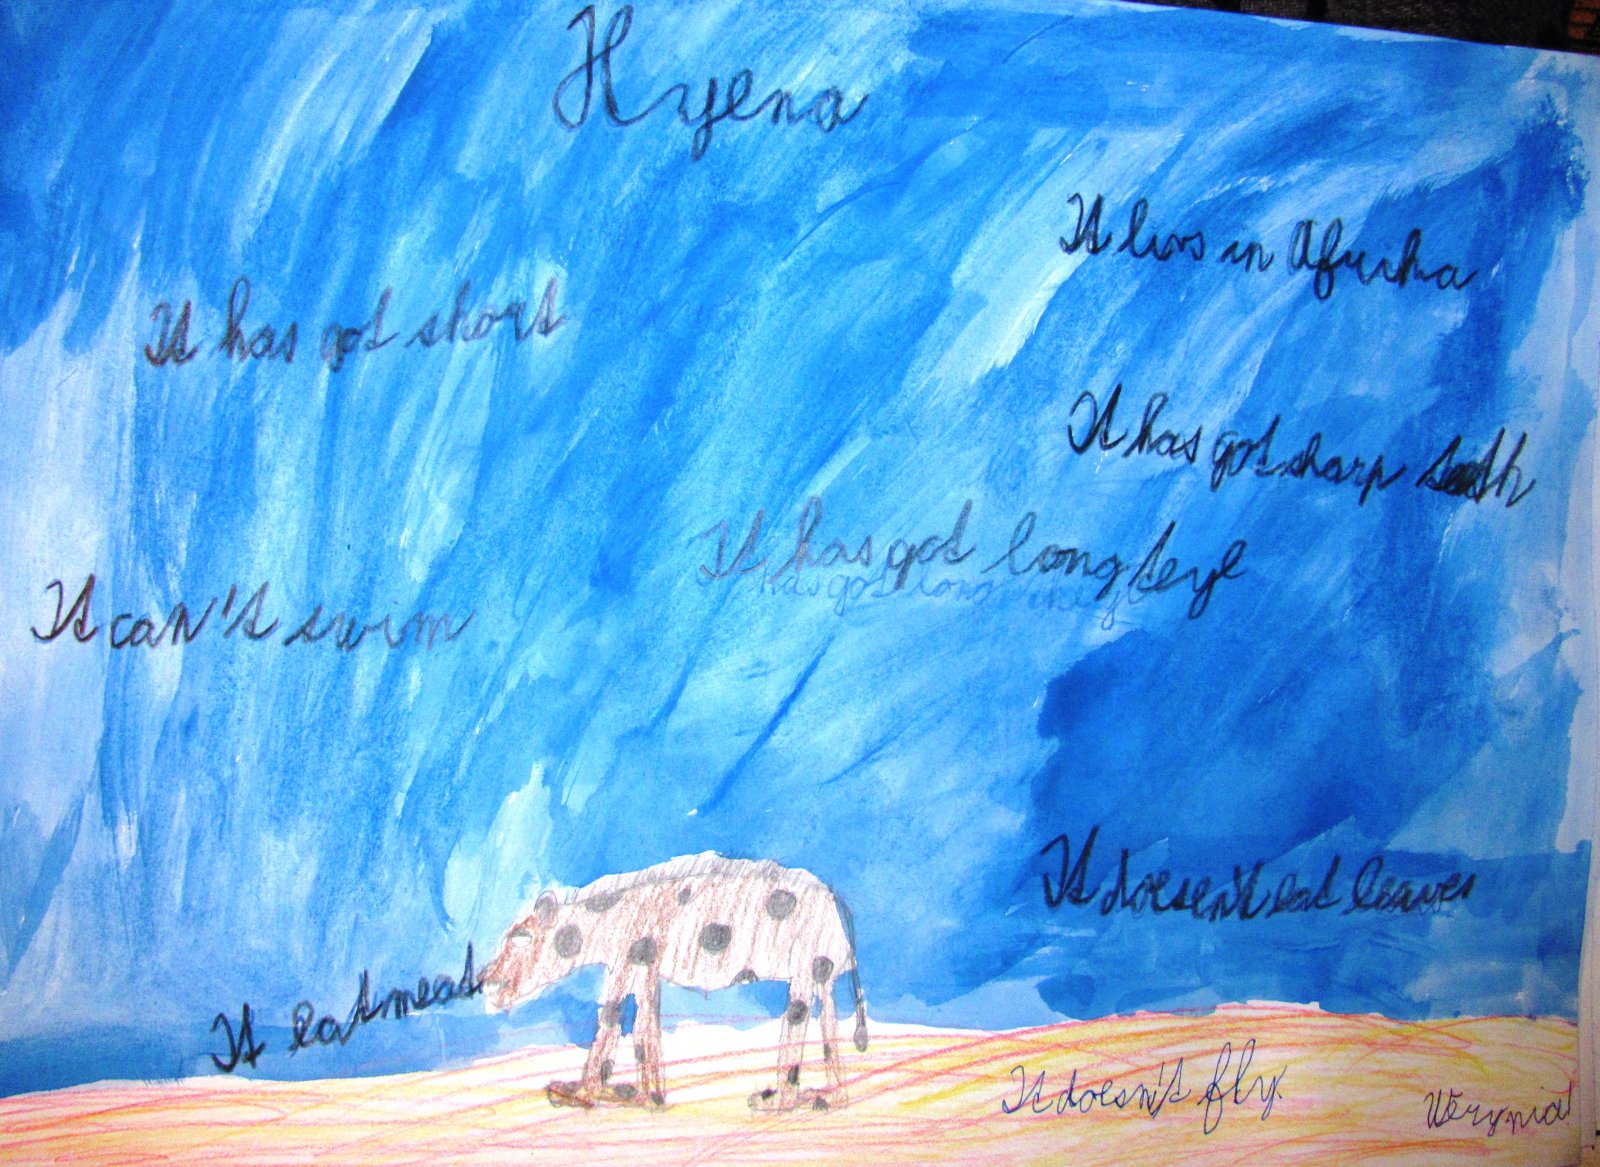 Hyena
It livs in Afrika
It has got short
It has got sharp teeth
It has got long teyl
has got long
It can't swim
It doesen't eat leaves
It eat meat
It doesn't fly.